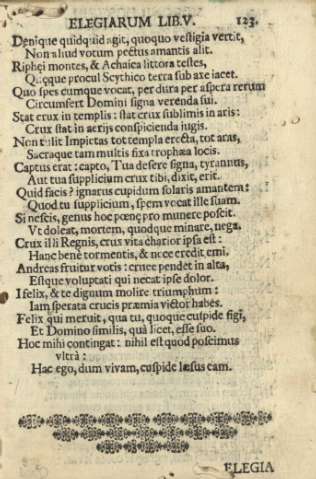 ELEGIARUM LIB.V. 123.
Denique quidquid agit, quoquo vestigia vertit,
Non aliud votum pectus amantis alit.
Riphei montes, & Achaica littora testes,
Quæque procul Scythico terra sub axe iacet.
Quo spes cumque vocat, per dura per aspera rerum
Circumfert Domini signa verenda sui.
Stat crux in templis: stat crux sublimis in aris:
Crux stat in aerijs conspicienda iugis.
Non tulit Impietas tot templa erecta, tot aras,
Sacraque tam multis fixa trophæa locis.
Captus erat: capto, Tua desere signa, tyrannus,
Aut tua supplicium crux tibi, dixit, erit.
Quid facis? ignarus cupidum solaris amantem:
Quod tu supplicium, spem vocat ille suam.
Si nescis, genus hoc pœnę pro munere poscit.
Vt doleat, mortem, quodque minare, nega,
Crux illi Regnis, crux vita charior ipsa est:
Hanc benè tormentis, & nece credit emi.
Andreas fruitur votis: cruce pendet in alta,
Estque voluptati qui necat ipse dolor.
I felix, & te dignum molire triumphum:
Iam sperata crucis præmia victor habes.
Felix qui meruit, qua tu, quoque cuspide figi,
Et Domino similis, quà licet, esse suo.
Hoc mihi contingat: nihil est quod poscimus
vltrà:
Hac ego, dum vivam, cuspide læsus eam.
ELEGIA